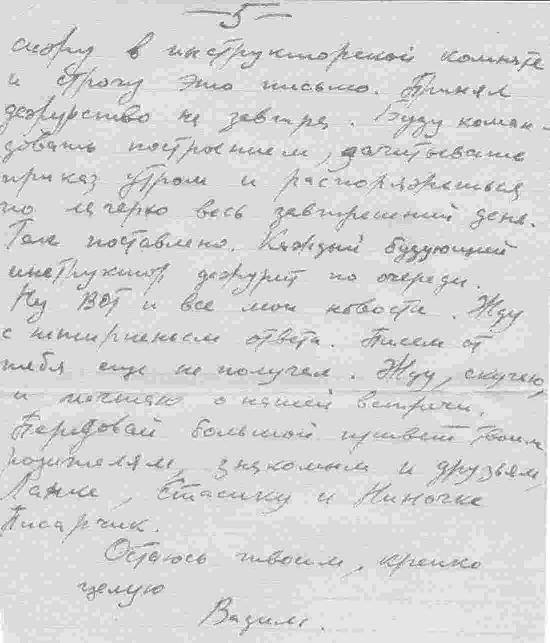 — 5 —
сижу в инструкторской комнате
и строчу это письмо. Принял
дежурство на завтра. Буду коман-
довать построением, зачитывать
приказ утром и распоряжаться
по лагерю весь завтрешний день.
Так поставлено. Каждый будующий
инструктор дежурит по очереди.
Ну вот и все мои новости. Жду
с нетирпением ответа. Писем от
тебя еще не получал. Жду, скучаю,
и мечтаю о нашей встречи.
Передовай большой привет твоим
родителям, знакомым и друзьям,
Стасику и Ниночке
Писарчик.
Остаюсь твоим, крепко
целую
Вадим.